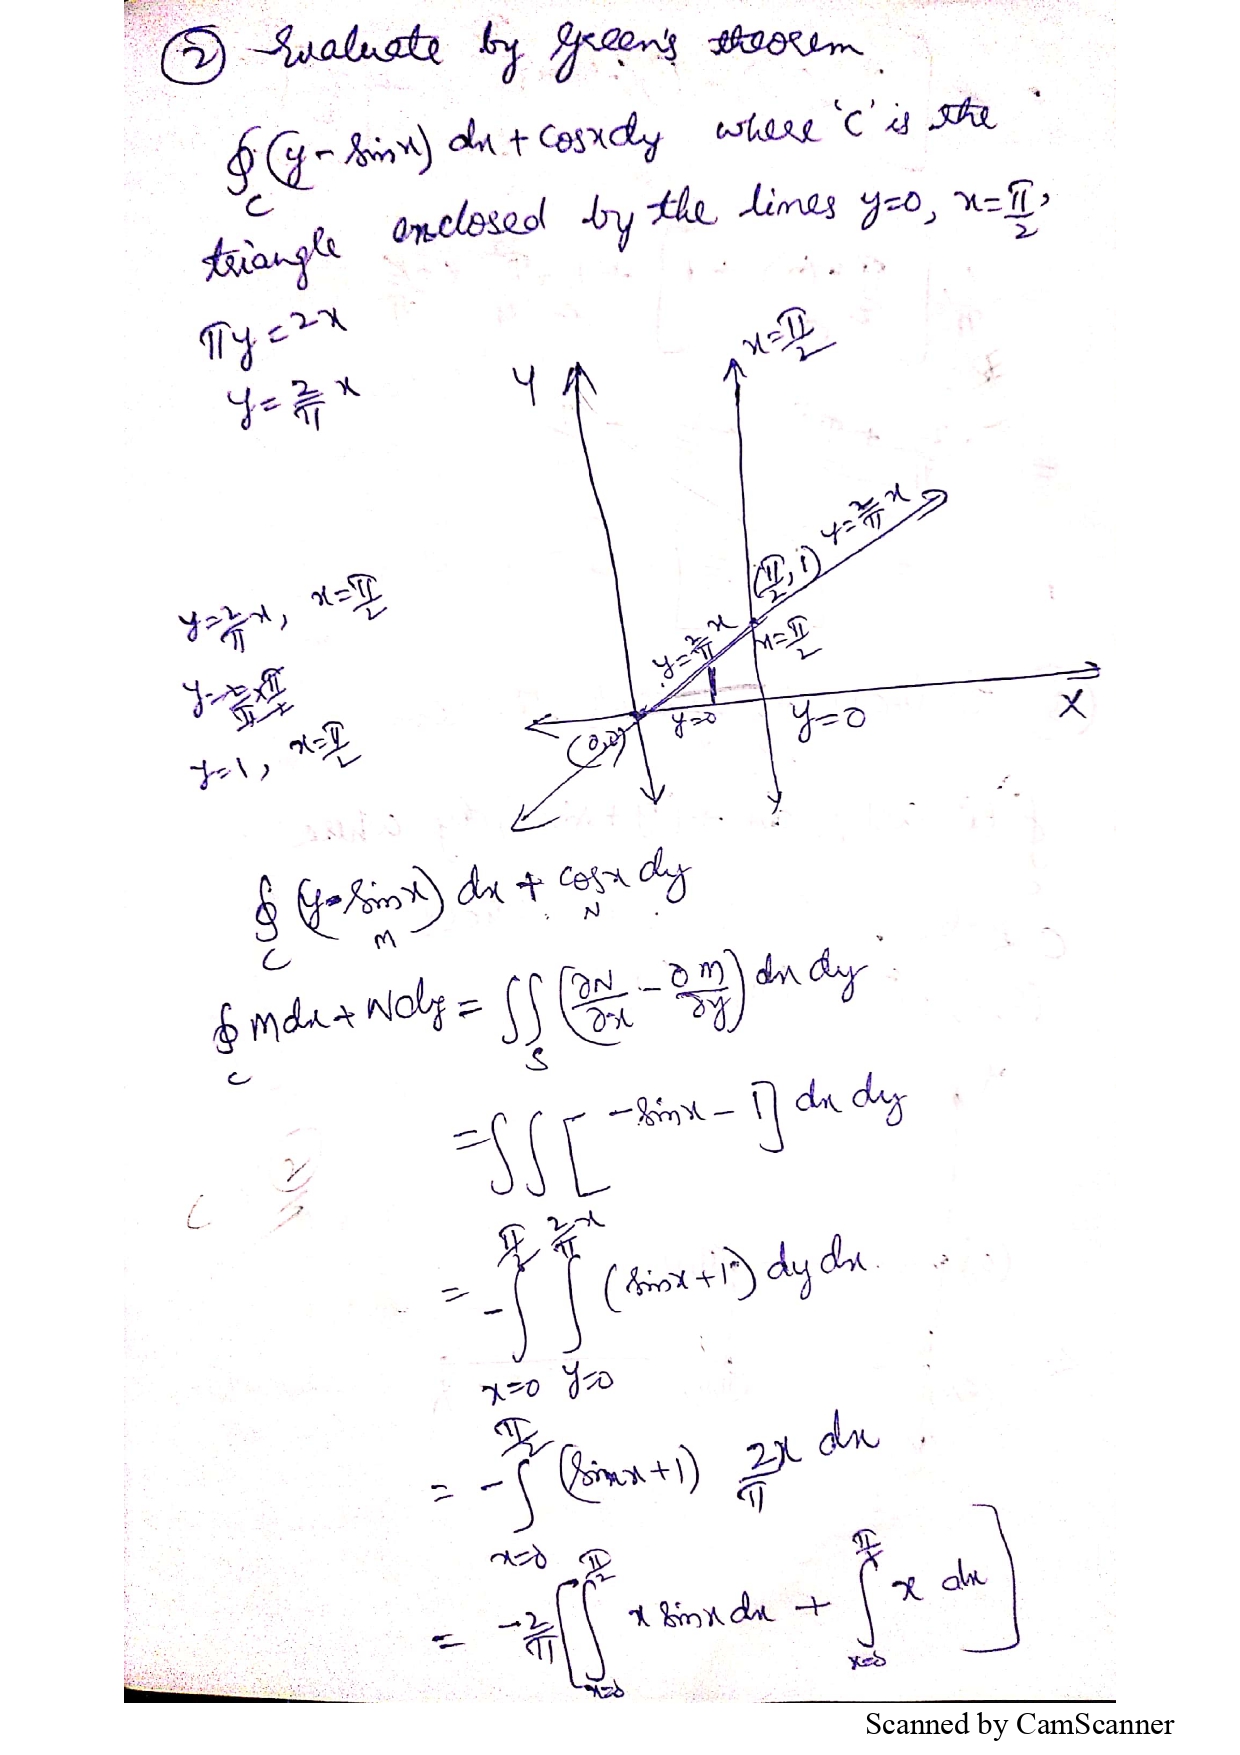 ② Evaluate by Green's theorem
∮_C (y - sinx) dx + cosx dy where 'C' is the
triangle enclosed by the lines y=0, x=π/2,
πy = 2x
y = 2/π x
Y
x=π/2
y=2/π x
(π/2, 1)
y=2/π x
x=π/2
y=0
(0,0)
y=0
X
y=2/π x, x=π/2
y=2/π × π/2
y=1, x=π/2
∮_C (y - sinx) dx + cosx dy
M N
∮_C Mdx + Ndy = ∫∫_S (∂N/∂x - ∂M/∂y) dx dy
= ∫∫ [-sinx - 1] dx dy
= -∫_{x=0}^{π/2} ∫_{y=0}^{2/π x} (sinx+1) dy dx.
= -∫_{x=0}^{π/2} (sinx+1) 2x/π dx
= -2/π [∫_{x=0}^{π/2} x sinx dx + ∫_{x=0}^{π/2} x dx]
Scanned by CamScanner